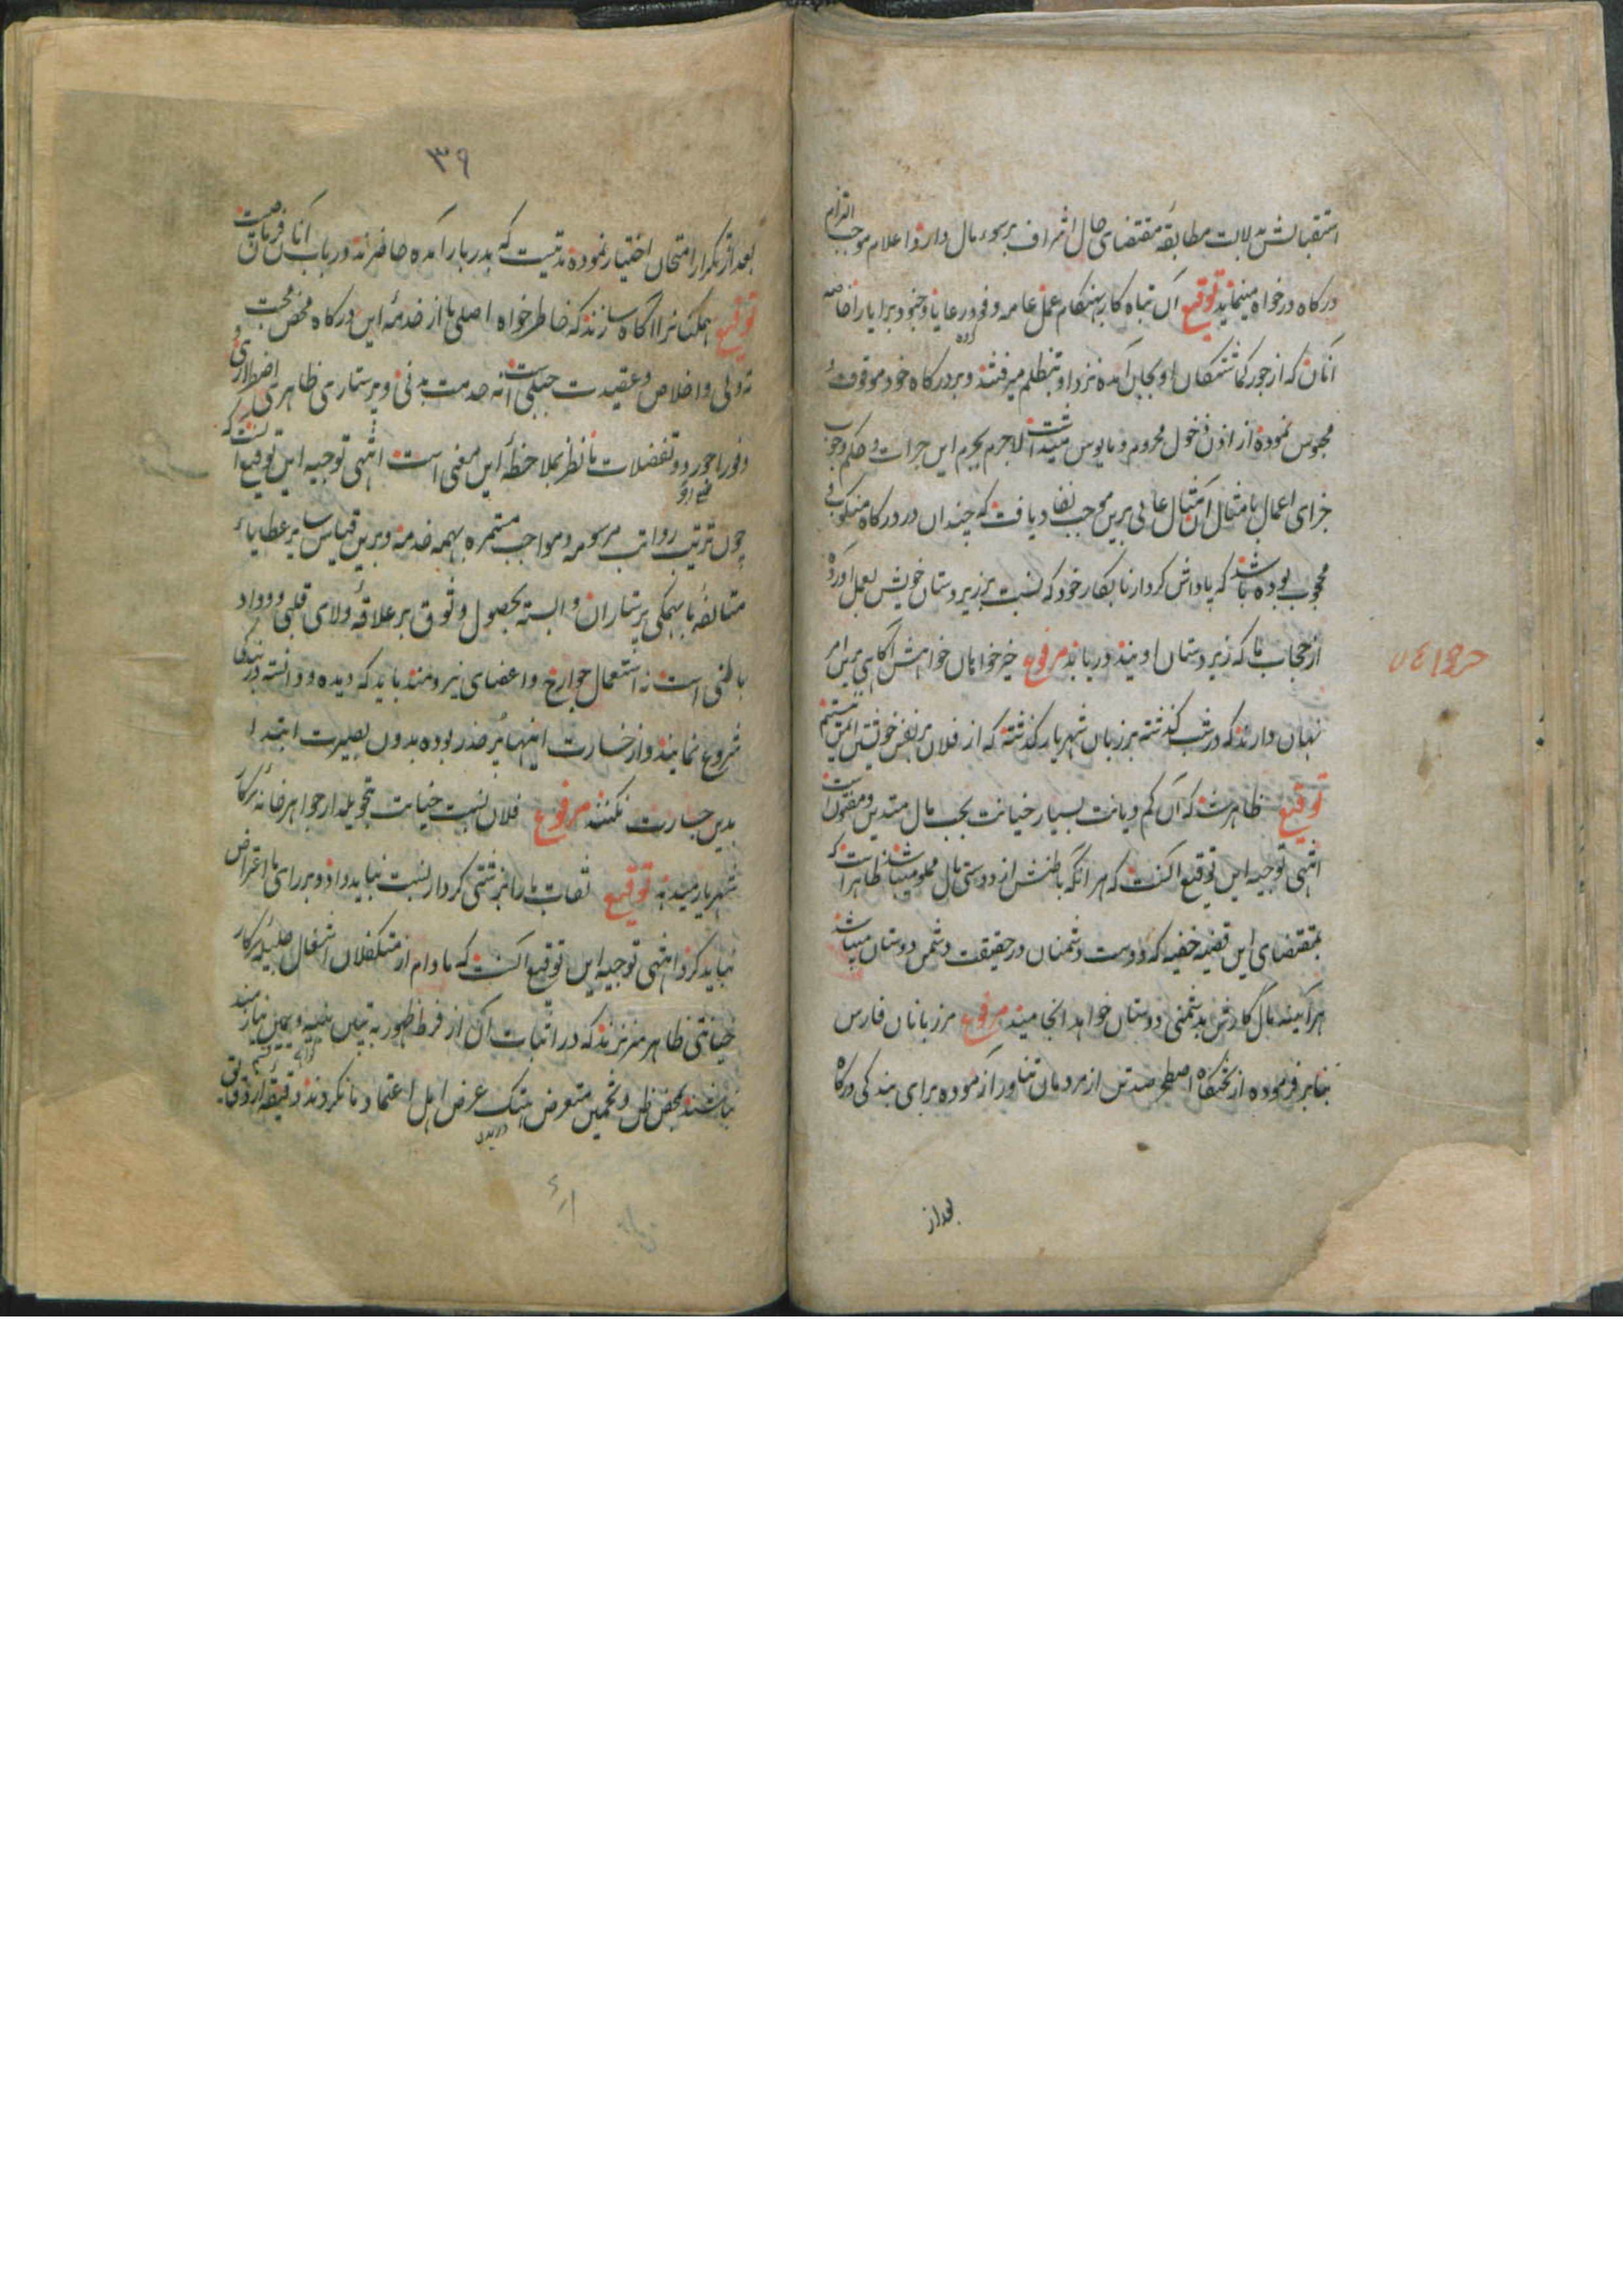 استقبالش بدلالت مطابقهٔ مقتضای حال اشراف بر سوء مآل دارد و اعلام موجب التزام
درکاه درخواه مینماید توقیع آن تباه کار بهنکام عمل عامه وفرود رعایا و جنود و برایا را خاصه
آنان که از جور کماشتکان او بجان آمده نزد او بتظلم میرفتند و بر درکاه خود موقوف و
محبوس نموده از اذن دخول محروم و مایوس میداشت لاجرم بجرم این جرات و حکم وجوب
جزای اعمال بامثال آن مثال عالی برین موجب نفاد یافت که چندان در درکاه منکوب و
محجوب بوده باشد که پاداش کردار نابکار خود که نسبت بزیردستان خویش بعمل آورده
از حجاب ما که زیردستان اویند دریابد مرفوع خیرخواهان خواهش آکاهی برین امر
نهان دارند که در شب کذشته بر زبان شهریار کذشته که از فلان بر نفس خویشتن ایمن نیستم
توقیع ظاهر شد که آن کم دیانت بسیار خیانت بحب مال متدین و مفتون است
انتهی توجیه این توقیع آنست که هر آنکه باطنش از دوستی مال مملو میباشد ظاهر است که
بمقتضای این قضیه خفیه که دوست دشمنان در حقیقت دشمن دوستان میباشد
هرآینه مآل کارش بدشمنی دوستان خواهد انجامید مرفوع مرزبانان فارس
بنابر فرموده از تختکاه اصطخر صد تن از مردمان تناور آزموده برای بندکی درکاه
بعد از
حروا ٧٤
٣٩
بعد از تکرار امتحان اختیار نموده مدتیست که بدربار آمده حاضرند در باب آنان فرمان چیست
توقیع همکنانرا آکاه سازند که خاطرخواه اصلی ما از خدمه این درکاه محض محبت
دلی و اخلاص و عقیدت جبلی است نه خدمت بدنی و پرستاری ظاهری اضطراری و
وفور اجور و تفضلات ما نظر بملاحظهٔ این معنی است انتهی توجیه این توقیع آنست که
چون ترتیب رواتب مرسومه و مواجب مستمره بهمه خدمه و برین قیاس نیز عطایای
متسالفهٔ ما بهمکی پرستاران وابسته بحصول وثوق بر علاقهٔ ولای قلبی و وداد
باطنی است نه استعمال جوارح و اعضای نیرومند باید که دیده و دانسته در بندکی
شروع نمایند و از خسارت انتها پر حذر بوده بدون بصیرت ابتدا
بدین جسارت نکنند مرفوع فلان نسبت خیانت بتحویلدار جواهر خانه سرکار
شهریار میدهد توقیع ثقات ما را بزشتی کردار نسبت نباید داد و بر رای ما اعتراض
نباید کرد انتهی توجیه این توقیع آنست که مادام از متکفلان اشغال جلیلهٔ سرکار
خیانتی ظاهر سر نزند که در اثبات آن از فرط ظهور به تبیین بینه و یمین نیازمند
نباشند بمحض ظن و تخمین متعرض هتک عرض اهل اعتماد ما نکردند و دقیقهٔ از دقایق